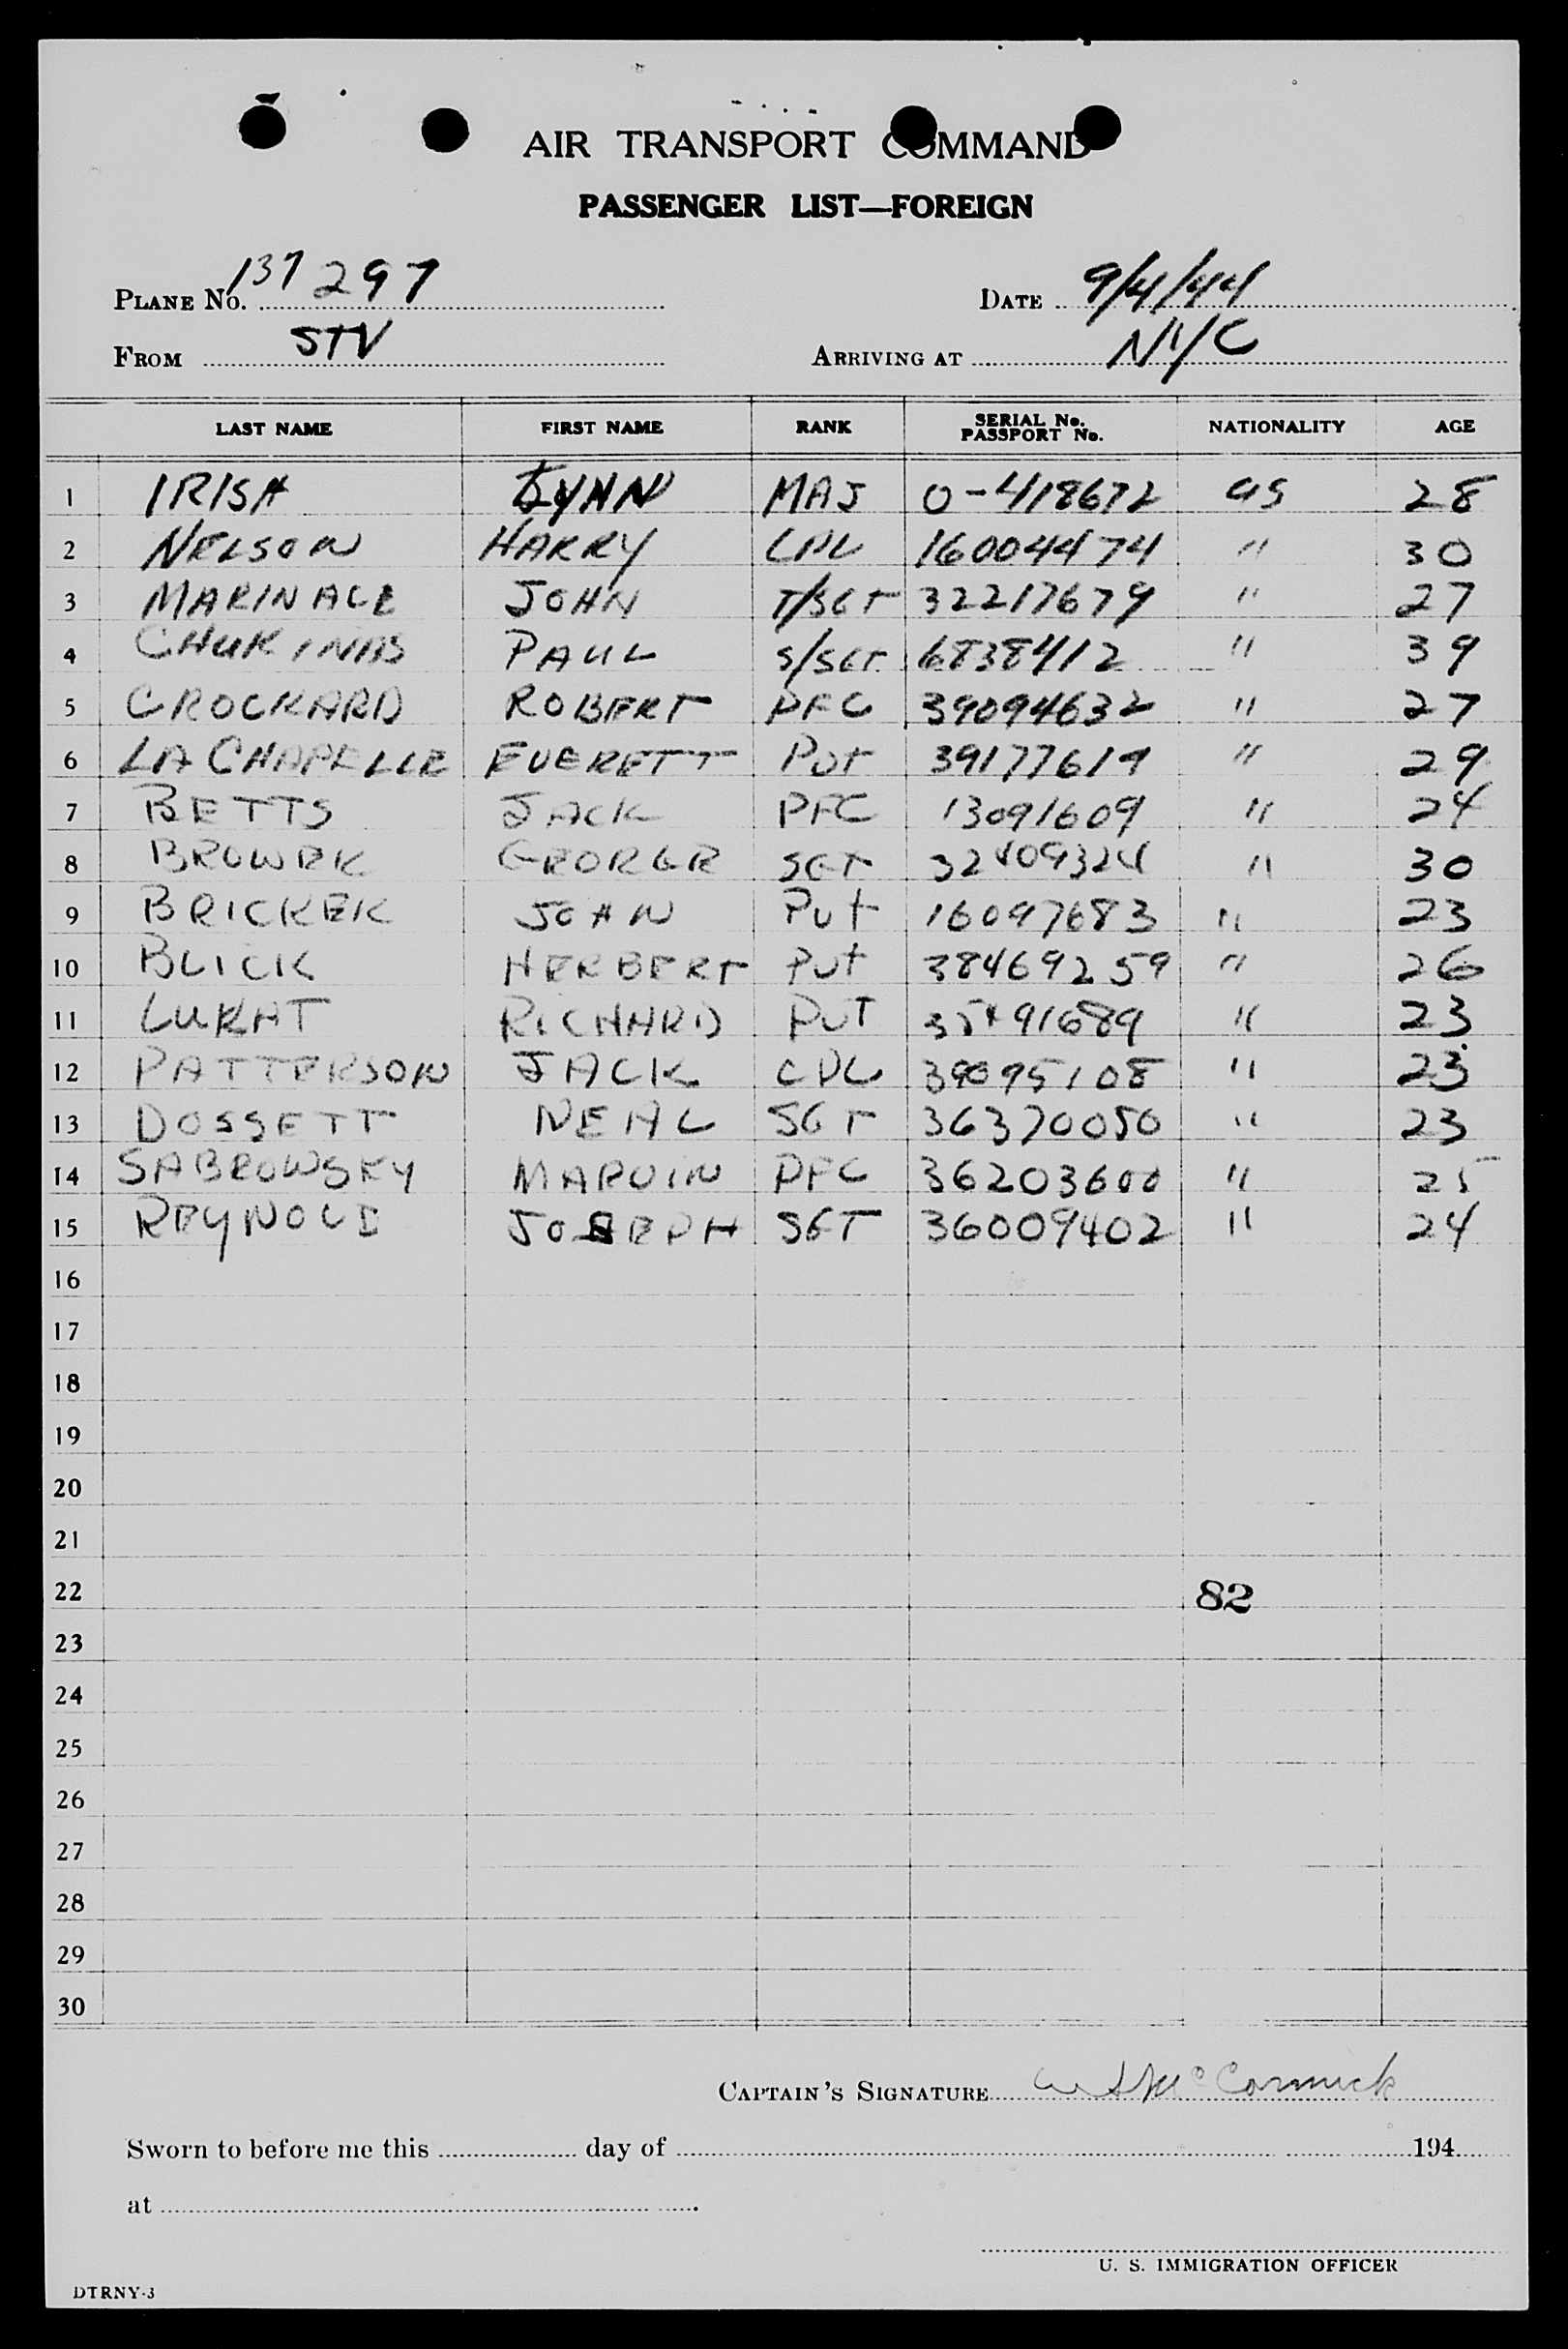 AIR TRANSPORT COMMAND
PASSENGER LIST—FOREIGN
PLANE No. 137297 DATE 9/4/44
FROM STV ARRIVING AT NYC
LAST NAME FIRST NAME RANK SERIAL No. PASSPORT No. NATIONALITY AGE
1 IRISH LYNN MAJ O-418672 US 28
2 NELSON HARRY CPL 16004474 " 30
3 MARINACE JOHN T/SGT 32217679 " 27
4 PAUL S/SGT 6838412 " 39
5 CROCKARD ROBERT PFC 39094632 " 27
6 LA CHAPELLE EVERETT Pvt 39177619 " 29
7 BETTS JACK PFC 13091609 " 24
8 BROWER GEORGE SGT 32409324 " 30
9 BRICKER JOHN Pvt 16097683 " 23
10 BLICK HERBERT Pvt 38469259 " 26
11 LUKAT RICHARD PVT 35491689 " 23
12 PATTERSON JACK CPL 39095108 " 23
13 DOSSETT NEAL SGT 36370050 " 23
14 SABROWSKY MARVIN PFC 36203600 " 25
15 REYNOLD JOSEPH SGT 36009402 " 24
16
17
18
19
20
21
22 82
23
24
25
26
27
28
29
30
CAPTAIN'S SIGNATURE McCormick
Sworn to before me this day of 194
at .
U. S. IMMIGRATION OFFICER
DTRNY-3